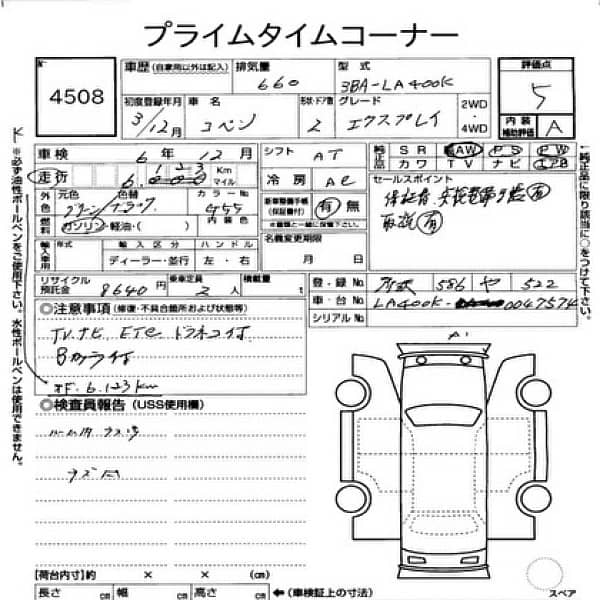 プライムタイムコーナー
4508
車歴 (自家用以外は記入) 排気量 型式
660 3BA-LA400K
評価点
5
初度登録年月 車名 形状・ドア数 グレード
3/12月 コペン 2 エクスプレイ
2WD
4WD
内装
補助評価 A
車検 6年12月
シフト AT
純正品 SR AW PS PW
カワ TV ナビ エアB
走行
Km
マイル
冷房 AC
セールスポイント
外色 元色 色替 カラーNo
内装色
燃料 ガソリン・軽油・( )
新車整備手帳
(保証書付) 有 無
※書類と一緒に保管して下さい。
取説 有
名義変更期限
月 日
輸入車用 年式 輸入区分 ハンドル
ディーラー・並行 左・右
リサイクル
預託金 8640円 乗車定員 2人 積載量 t
登・録No 586 や 522
車・台No LA400K- 0047574
シリアルNo
◎注意事項 (修復・不具合箇所および状態等)
TV.ナビ ETC ドラレコ付
Bカメラ付
6.123km
◎検査員報告 (USS使用欄)
【荷台内寸】約 × × (cm)
長さ cm 幅 cm 高さ cm
←(車検証上の寸法)
スペア
A1
※必ず油性ボールペンをご使用下さい。水性ボールペンは使用できません。
↑純正品に限り該当に○をつけて下さい。